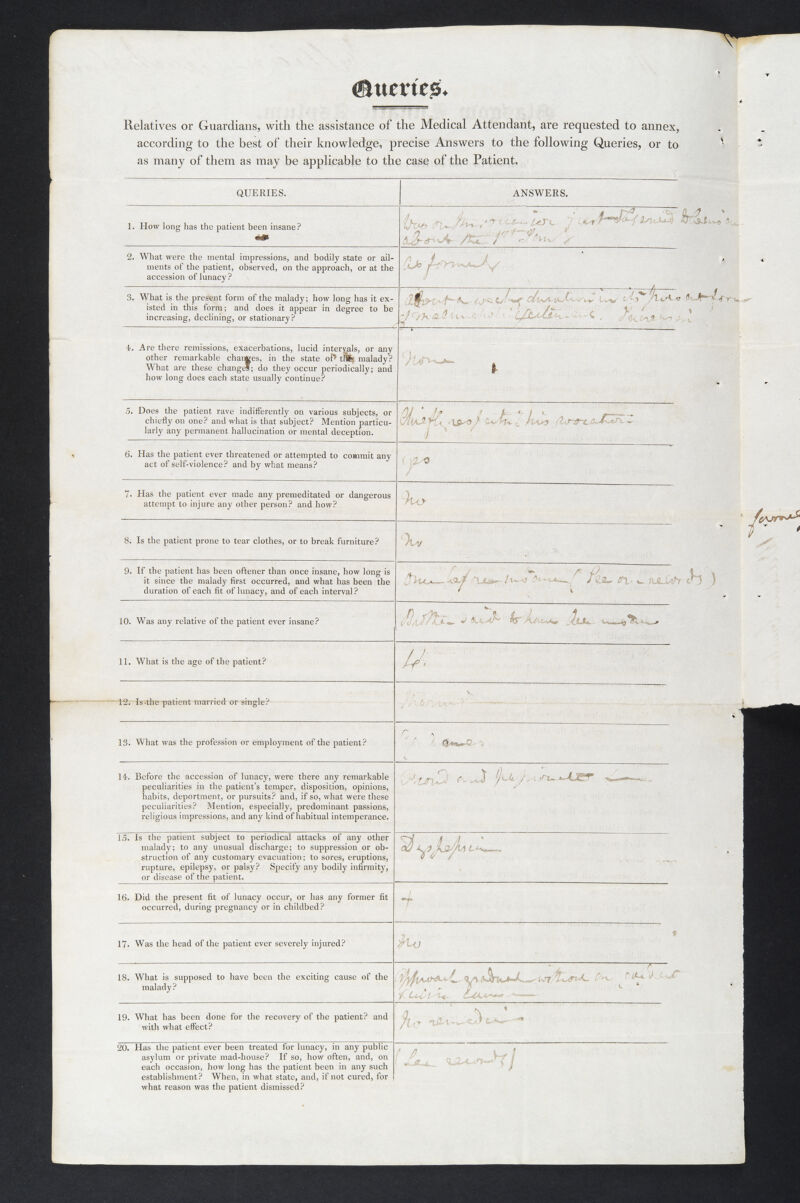 Queries.
Relatives or Guardians, with the assistance of the Medical Attendant, are requested to annex,
according to the best of their knowledge, precise Answers to the following Queries, or to
as many of them as may be applicable to the case of the Patient.
QUERIES.
ANSWERS.
1. How long has the patient been insane?
Was on
about the 1st
2. What were the mental impressions, and bodily state or ail-
ments of the patient, observed, on the approach, or at the
accession of lunacy?
As formerly
3. What is the present form of the malady; how long has it ex-
isted in this form; and does it appear in degree to be
increasing, declining, or stationary?
About a week's duration in its present form
4. Are there remissions, exacerbations, lucid intervals, or any
other remarkable changes, in the state of the malady?
What are these changes; do they occur periodically; and
how long does each state usually continue?
None
5. Does the patient rave indifferently on various subjects, or
chiefly on one? and what is that subject? Mention particu-
larly any permanent hallucination or mental deception.
Chiefly respecting his avocation
6. Has the patient ever threatened or attempted to commit any
act of self-violence? and by what means?
yes
7. Has the patient ever made any premeditated or dangerous
attempt to injure any other person? and how?
No
8. Is the patient prone to tear clothes, or to break furniture?
No
9. If the patient has been oftener than once insane, how long is
it since the malady first occurred, and what has been the
duration of each fit of lunacy, and of each interval?
Once before insane (See our records)
10. Was any relative of the patient ever insane?
Brother said to have been insane
11. What is the age of the patient?
12. Is the patient married or single?
13. What was the profession or employment of the patient?
14. Before the accession of lunacy, were there any remarkable
peculiarities in the patient's temper, disposition, opinions,
habits, deportment, or pursuits? and, if so, what were these
peculiarities? Mention, especially, predominant passions,
religious impressions, and any kind of habitual intemperance.
Proud and passionate
15. Is the patient subject to periodical attacks of any other
malady; to any unusual discharge; to suppression or ob-
struction of any customary evacuation; to sores, eruptions,
rupture, epilepsy, or palsy? Specify any bodily infirmity,
or disease of the patient.
Dyspepsia
16. Did the present fit of lunacy occur, or has any former fit
occurred, during pregnancy or in childbed?
+
17. Was the head of the patient ever severely injured?
No
18. What is supposed to have been the exciting cause of the
malady?
Approach gradual without an evident
exciting cause
19. What has been done for the recovery of the patient? and
with what effect?
No remedies
20. Has the patient ever been treated for lunacy, in any public
asylum or private mad-house? If so, how often, and, on
each occasion, how long has the patient been in any such
establishment? When, in what state, and, if not cured, for
what reason was the patient dismissed?
(See records)